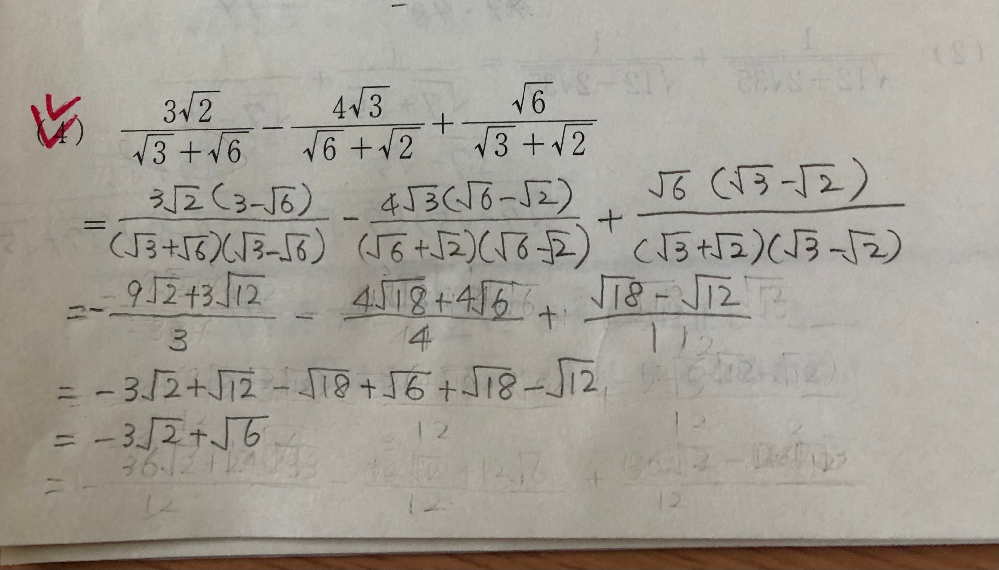 (4) 3√2/(√3+√6) − 4√3/(√6+√2) + √6/(√3+√2)
= 3√2(3−√6)/(√3+√6)(√3−√6) − 4√3(√6−√2)/(√6+√2)(√6−√2) + √6(√3−√2)/(√3+√2)(√3−√2)
= − (9√2+3√12)/3 − (4√18+4√6)/4 + (√18−√12)/1
= −3√2+√12−√18+√6+√18−√12
= −3√2+√6
=